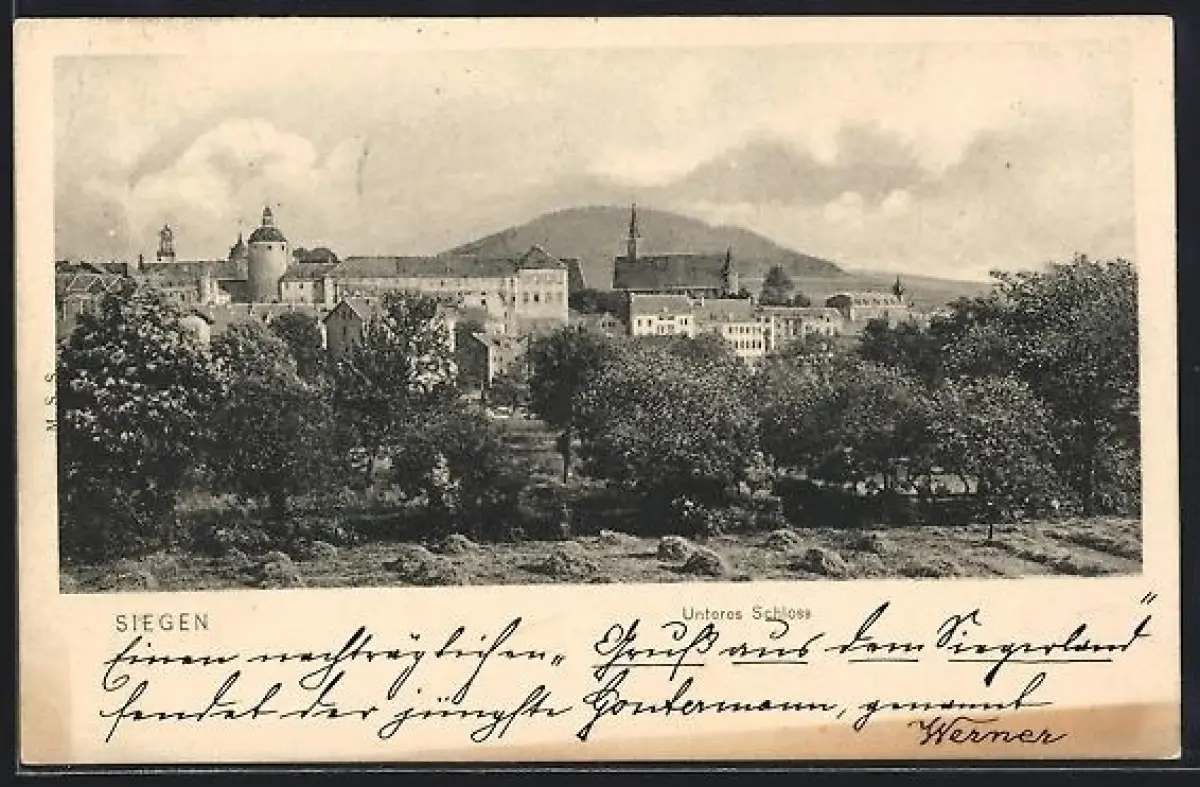 M. S. S.
SIEGEN
Unteres Schloss
Einen nachträglichen „Gruß aus dem Siegerland“
sendet der jüngste Gontermann, genannt
Werner